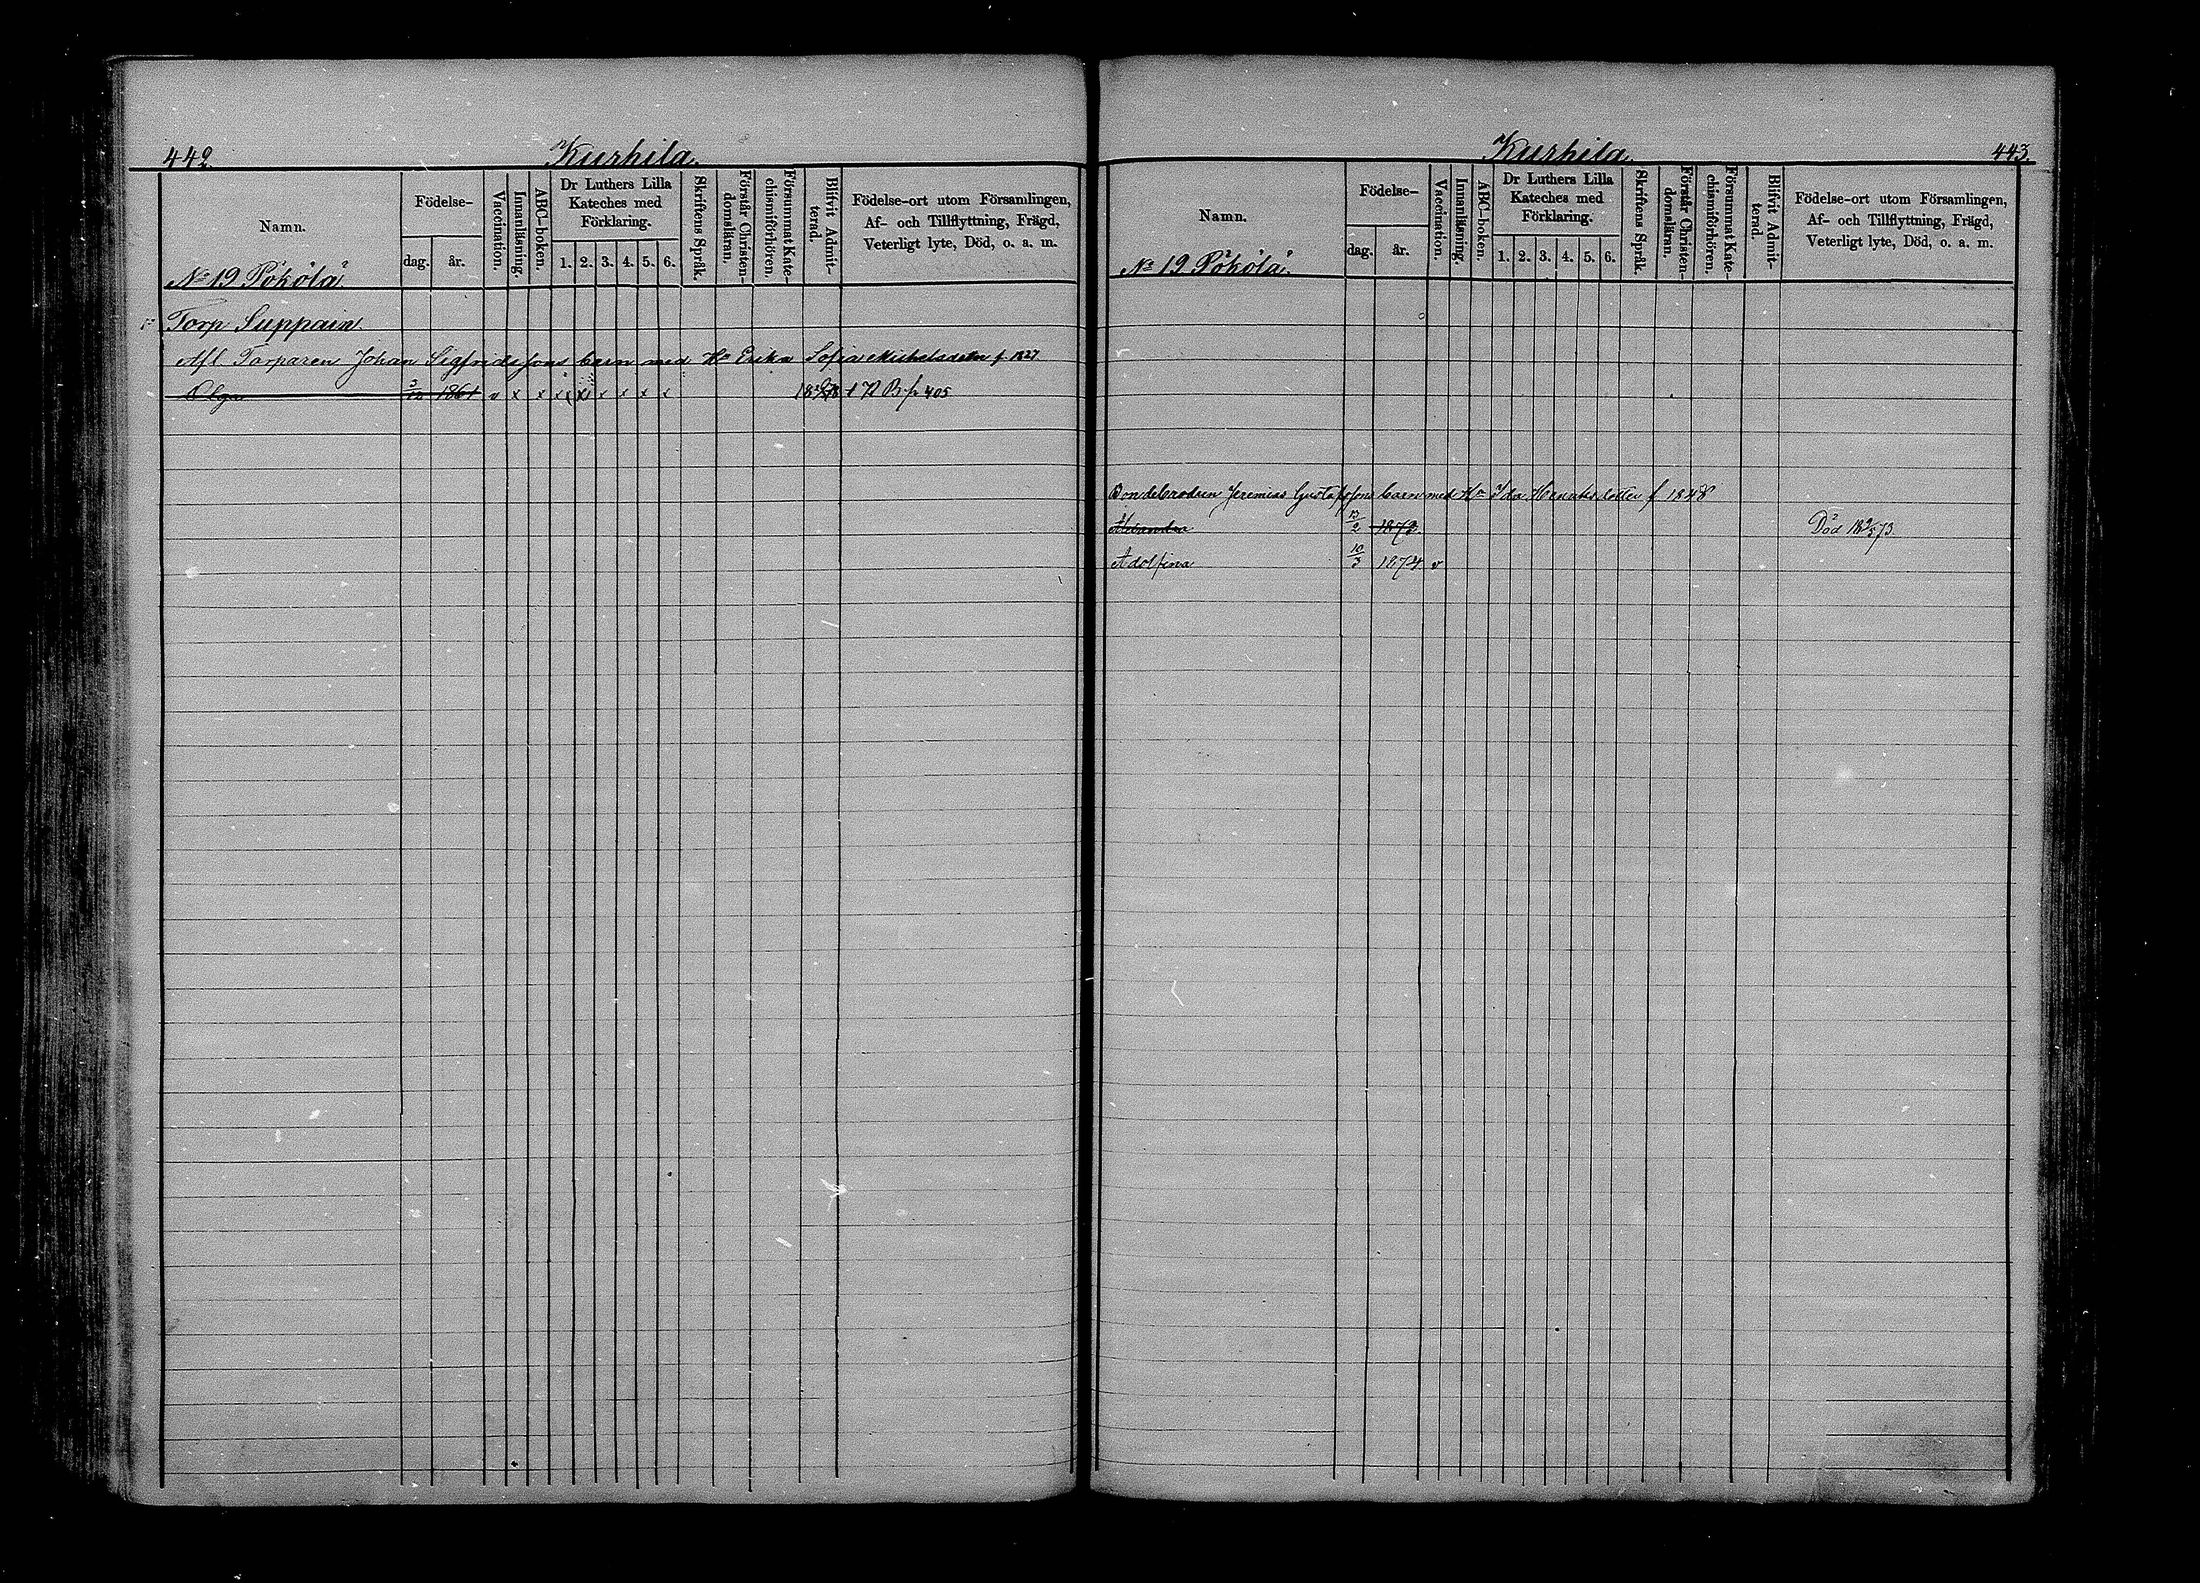 442. Kurhila.
Namn. Födelse- dag. år. Vaccination. Innanläsning. ABC-boken. Dr Luthers Lilla Kateches med Förklaring. 1. 2. 3. 4. 5. 6. Skriftens Språk. Förstår Christendomsläran. Försummat Katechismiförhören. Blifvit Admitterad. Födelse-ort utom Församlingen, Af- och Tillflyttning, Frägd, Veterligt lyte, Död, o. a. m.
No 19 Pökölä
Torp Suppain
Afl. Torparen Johan Sigfridssons barn med Ho Erika Sofia Michelsdotter f. 1827
Olga 3/12 1861 v x x x x x x x x B p 405
Kurhila. 443.
Namn. Födelse- dag. år. Vaccination. Innanläsning. ABC-boken. Dr Luthers Lilla Kateches med Förklaring. 1. 2. 3. 4. 5. 6. Skriftens Språk. Förstår Christendomsläran. Försummat Katechismiförhören. Blifvit Admitterad. Födelse-ort utom Församlingen, Af- och Tillflyttning, Frägd, Veterligt lyte, Död, o. a. m.
No 19 Pökölä.
Bondebrodren Jeremias Gustafssons barn med Ho Ida Henriksdotter f 1848
13/2 1872. Död 18 9/5 73.
Adolfina 10/3 1874 v